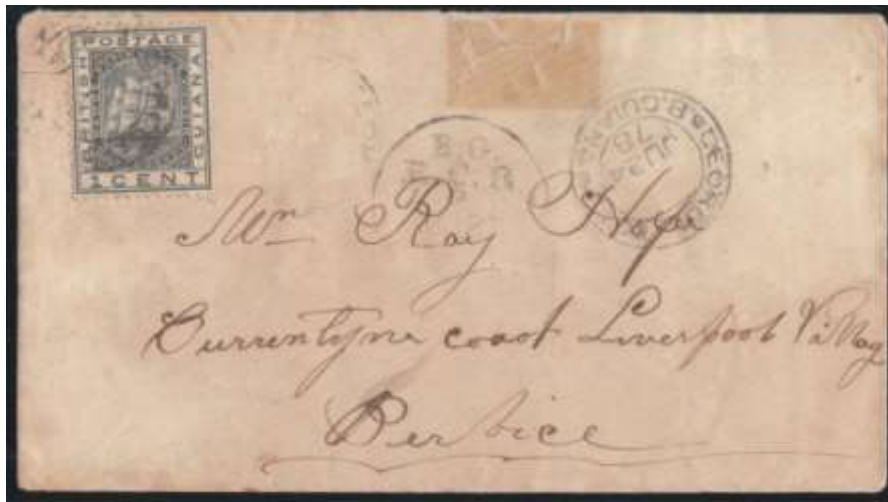 POSTAGE
BRITISH
GUIANA
1 CENT
B.G.
JU 24
78
B. GUIANA
Mr Ray Hope
Currentyne coast Liverpool Village
Berbice